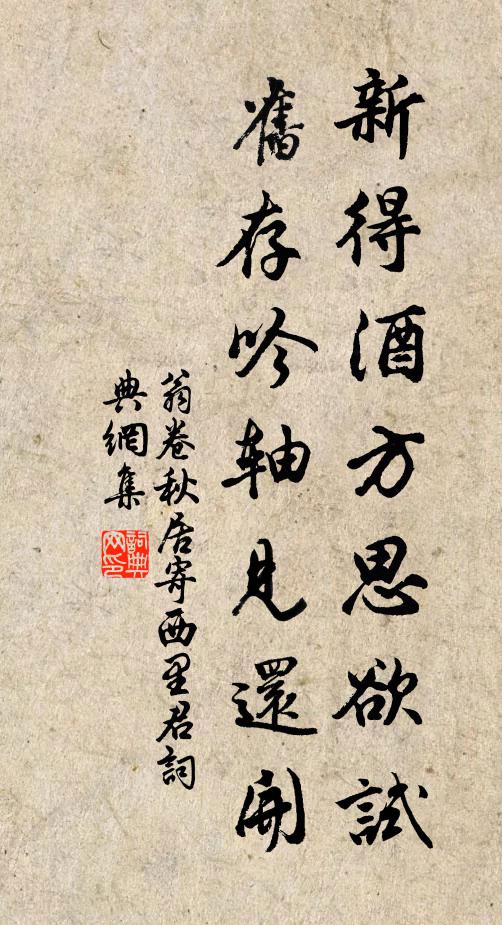 新得酒方思欲試
舊存吟軸見還開
翁卷秋居寄西里君詞
典網集
詞典网印